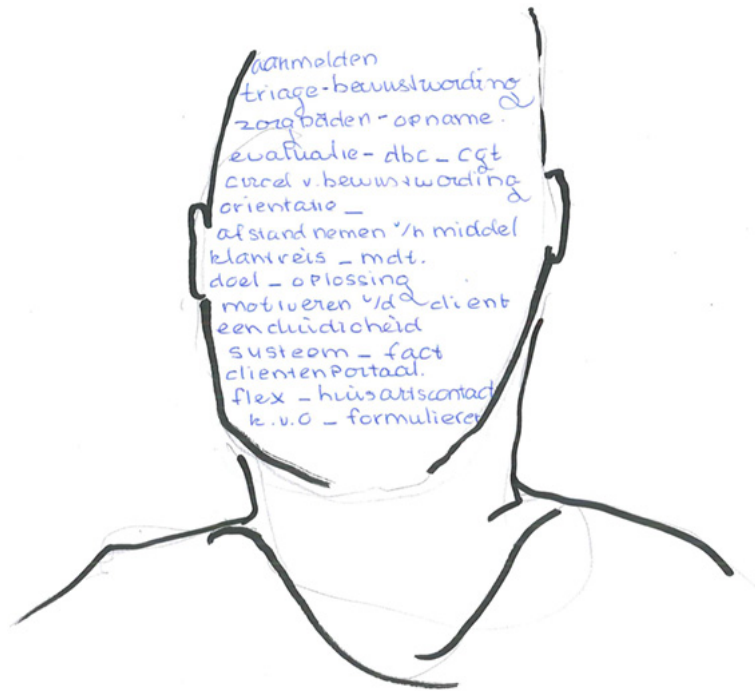 aanmelden
triage-bewustwording
zorgpaden - opname.
evaluatie - dbc - cgt
circel v. bewustwording
orientatie -
afstand nemen v/h middel
klantreis - mdt.
doel - oplossing
motiveren v/d client
eenduidigheid
systeem - fact
clientenportaal.
flex - huisartscontact
k.v.o - formulieren